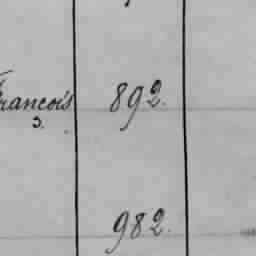 François 892.
3.
982.